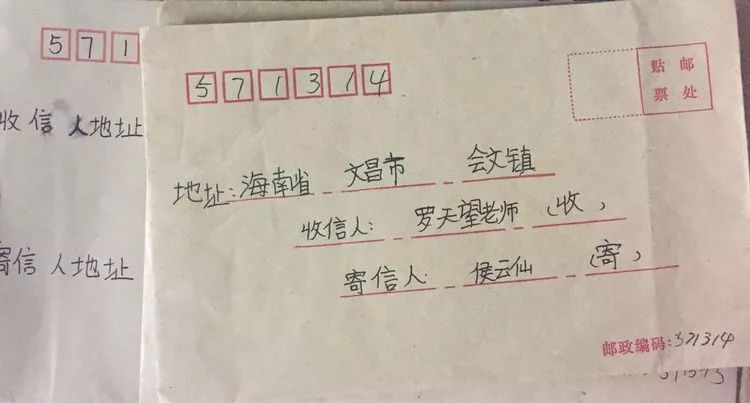 571
收信人地址
寄信人地址
571314
贴邮
票处
地址:海南省 文昌市 会文镇
收信人: 罗天望老师 (收)
寄信人: 侯云仙 (寄)
邮政编码:571314